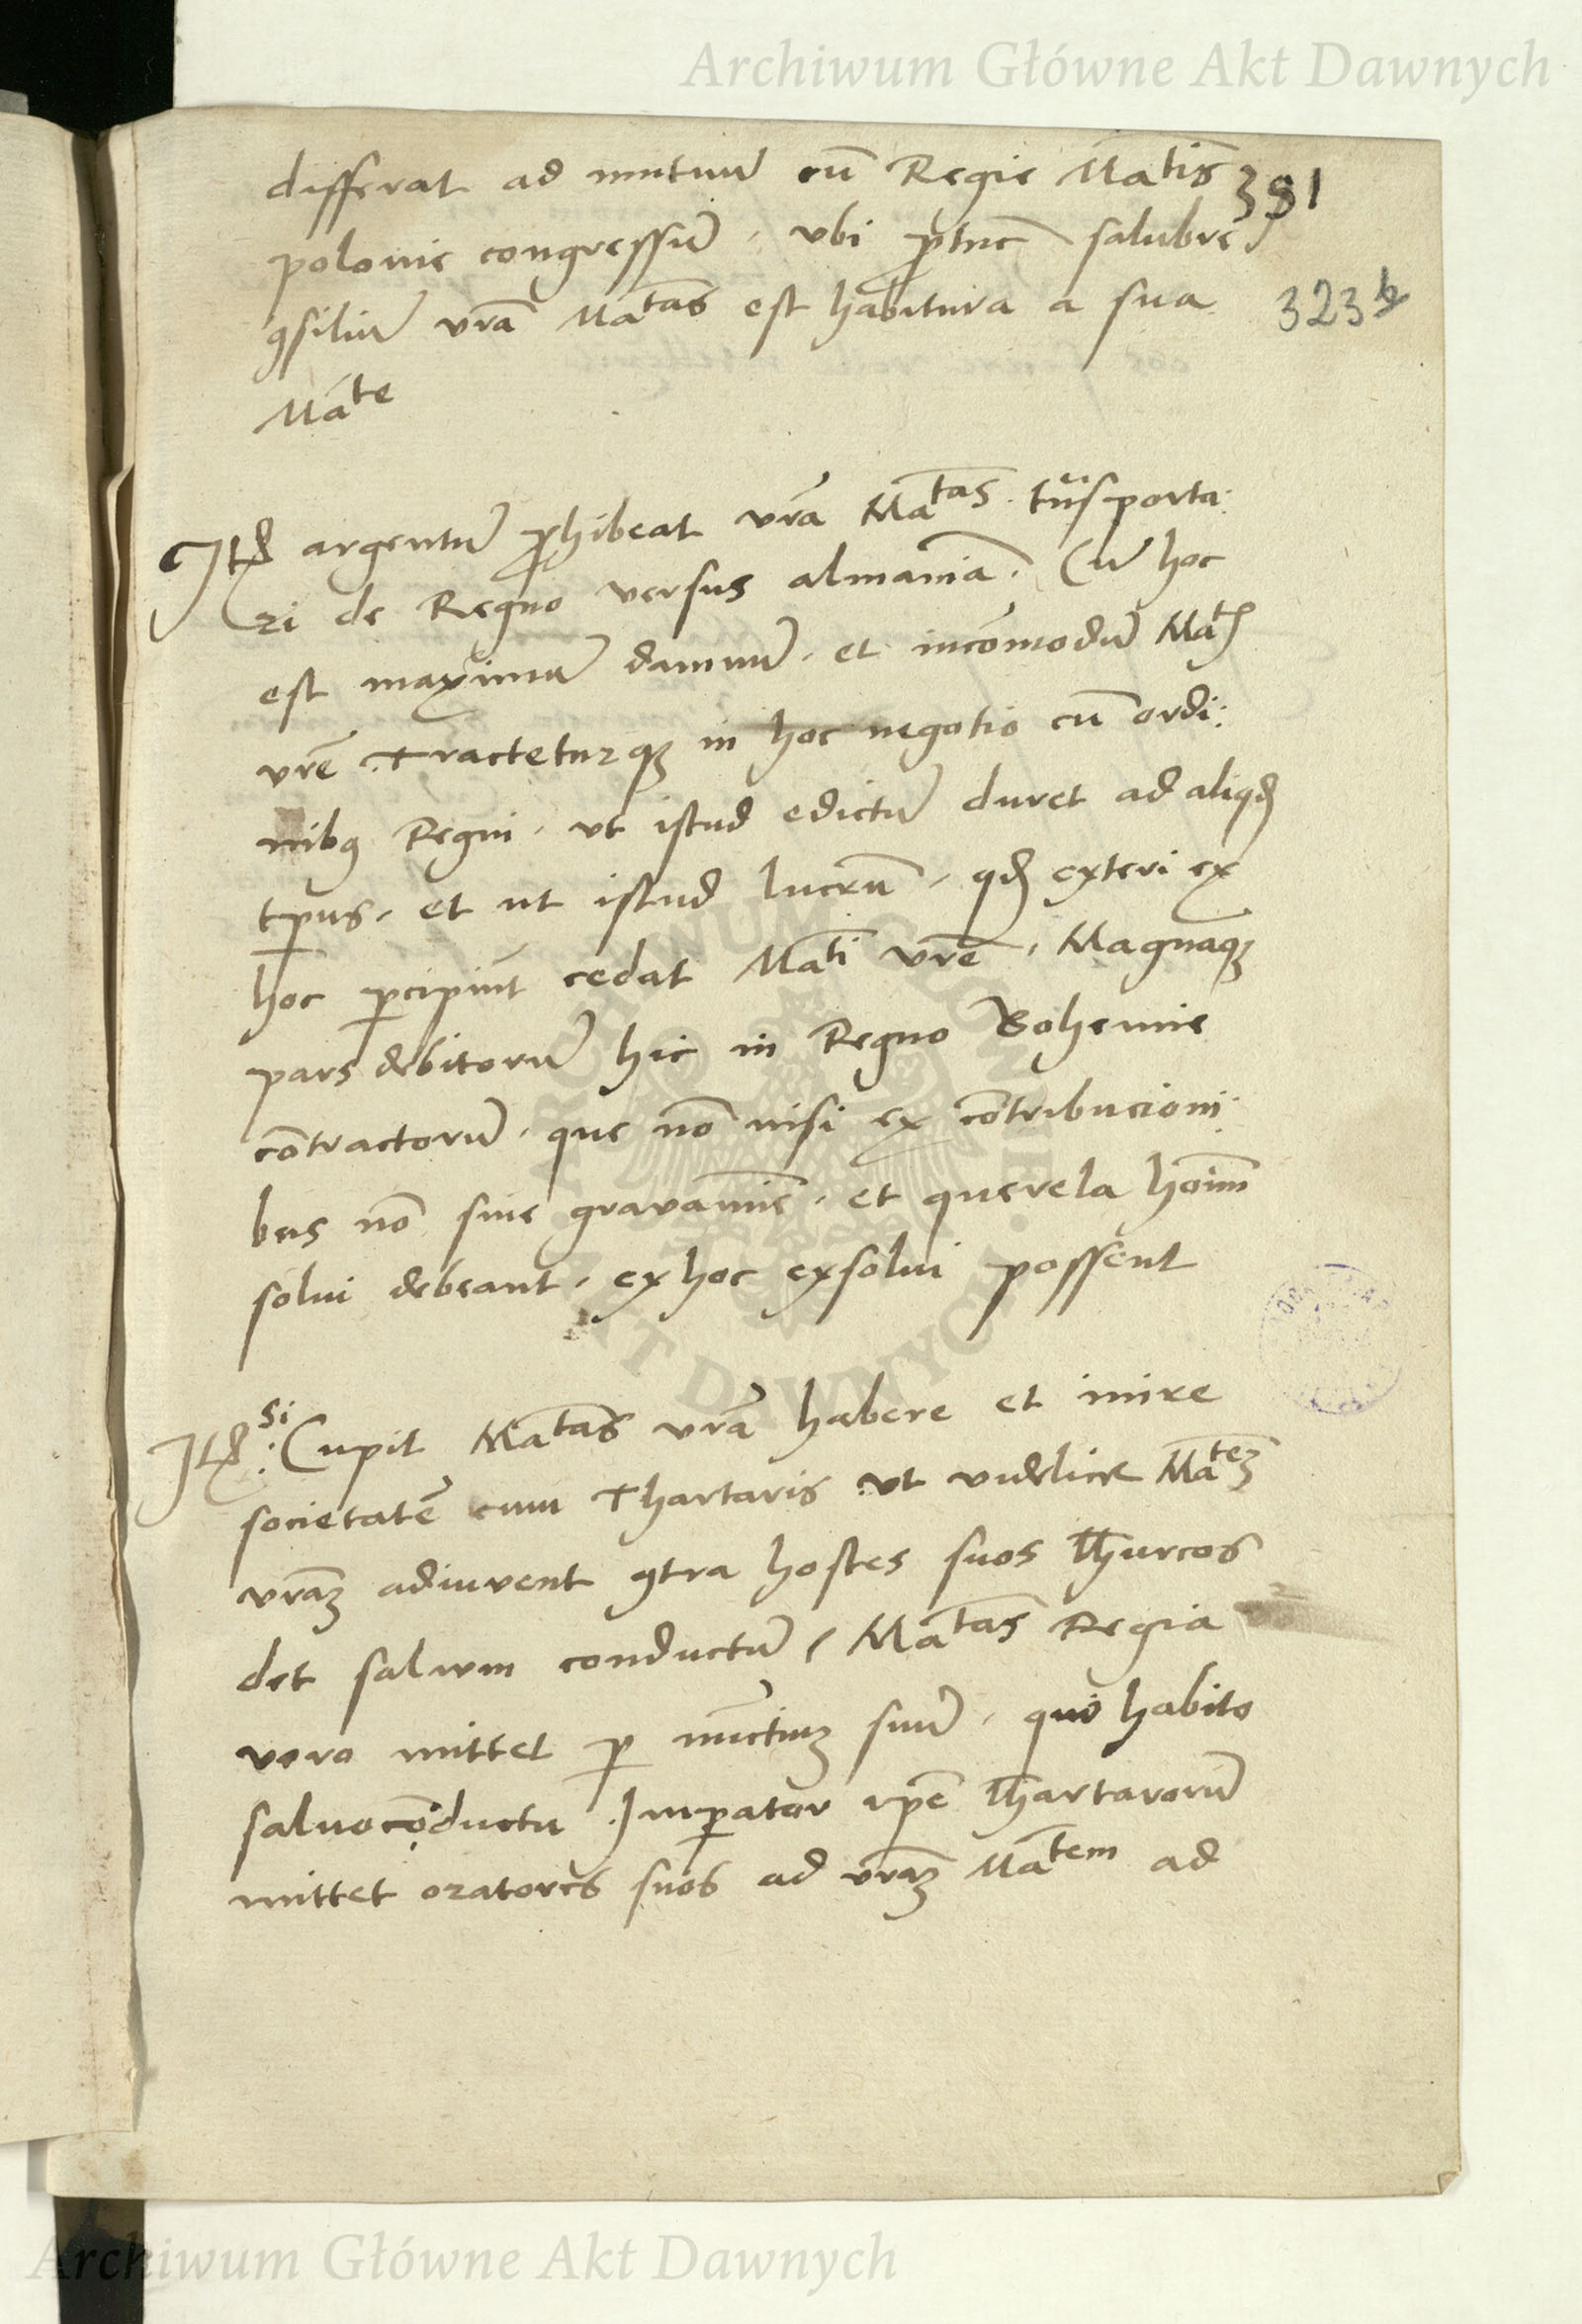 Archiwum Główne Akt Dawnych
differat ad mutuū cū Regie Matis 381
polonie congressū · vbi ptūc salubre
ꝯsiliū vrā Matas est habitura a sua 323b
Mate
Itē argentū ꝓhibeat vrā Matas trāsporta:
ri de Regno versus almaniā · Cū hoc
est maximū damnū · et incōmodū Mat̄
vrē Tracteturqꝫ in hoc negotio cū ordi:
nibꝰ Regni · vt istud edictū duret ad aliqđ
tp̄us · et ut istud lucrū · qđ exteri ex
hoc ꝑcipiūt cedat Mati vrē · Magnaqꝫ
pars debitorū hic in Regno Bohemie
cōtractorū · que nō nisi ex cōtribucioni:
bus nō sine gravamīe · et querela hoīm
solui debeant · ex hoc exsolui possent
Itē si Cupit Matas vrā habere et inire
societatē cum Thartaris vt videlicꝫ Mateꝫ
vraꝫ adiuvent ꝯtra hostes suos Thurcos
det salvum conductū / Matas Regia
vero mittet ꝑ nūctiuꝫ suū · qui habito
salvocōductu Impator ip̄e Thartarorū
mittet oratores suos ad vraꝫ Matem ad
Archiwum Główne Akt Dawnych